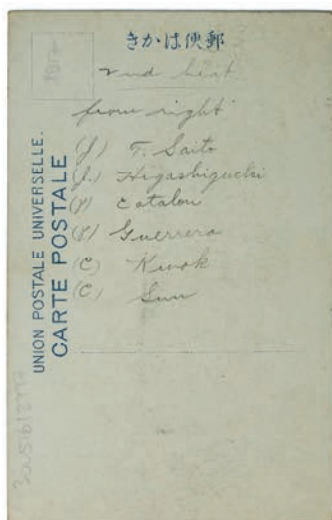 郵便はかき
1917
2nd heat
from right
(J) T. Saito
(J.) Higashiguchi
(P) Catalon
(P) Guerrero
(C) Kwok
(C) Sun
UNION POSTALE UNIVERSELLE.
CARTE POSTALE